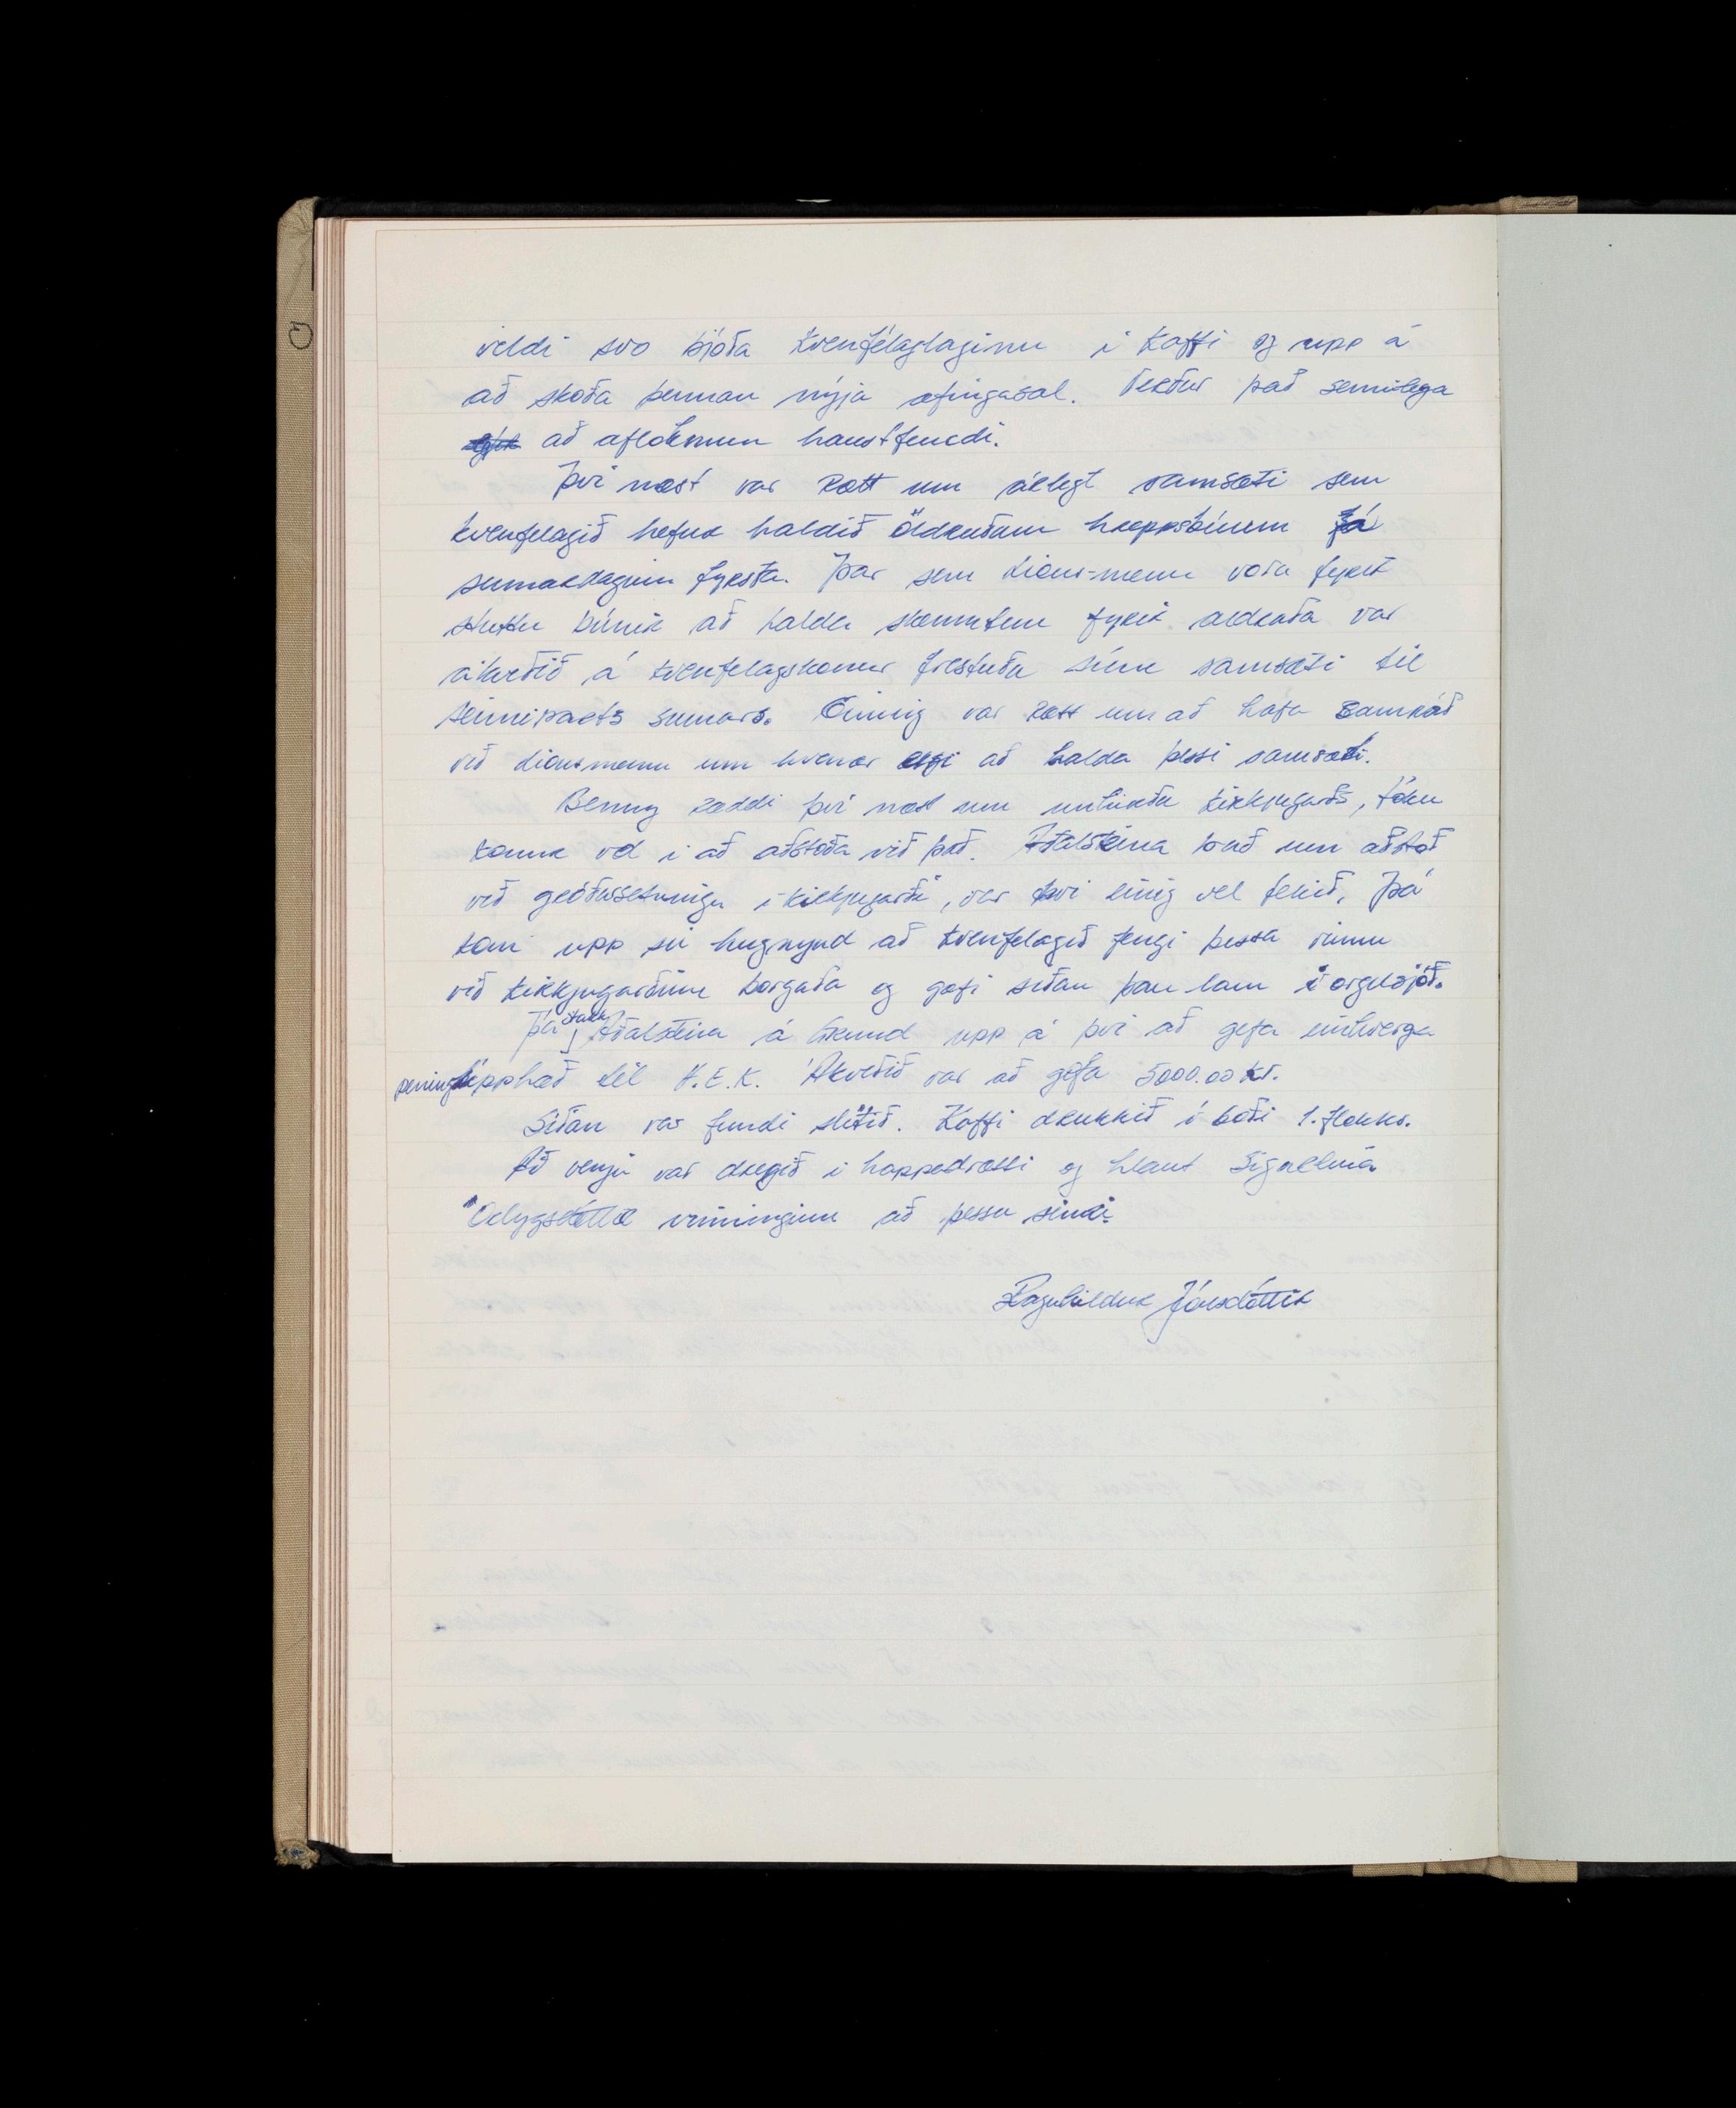 vildi svo bjóða Kvenfélaglaginu í Kaffi og upp á
að skoða þennan nýja æfingasal. Verður það semilega
að aflöknum haustfundi.
Því næst var Rætt um árlegt samsæti sem
kvenfelagið hefur haldið öldruðum hreppsbúum á
sumardaginn fyrsta. Þar sem Lions-menn voru fyrir
stuttu búnir að halda skemmtun fyrir aldraða var
ákveðið á kvenfelagskonur frestuðu sínu samsæti til
seinniparts sumars. Einnig var Rætt um að hafa samráð
við Lionsmenn um hvenær eigi að halda þessi samsæti.
Benny Ræddi því næst um umhirðu kirkjugarðs, tóku
konur vel í að aðstoða við það. Aðalsteina bað um aðstoð
við gróðursetningu í kirkjugarði, var því einig vel tekið. Þá
kom upp sú hugmynd að kvenfelagið fengi þessa vinnu
við kirkjugarðinn borgaða og gæfi síðan þau laun í orgelsjóð.
Þá stakk Aðalsteina á Grund upp á því að gefa einhverja
peningaupphæð til H.E.K. Ákveðið var að gefa 5000.00 kr.
Síðan var fundi slitið. Kaffi drukkið í boði 1. flokks.
Að venju var dregið í happadrætti og hlaut Signelína
Ödygsdóttir vinninginn að þessu sinni.
Ragnhildur Jónsdóttir